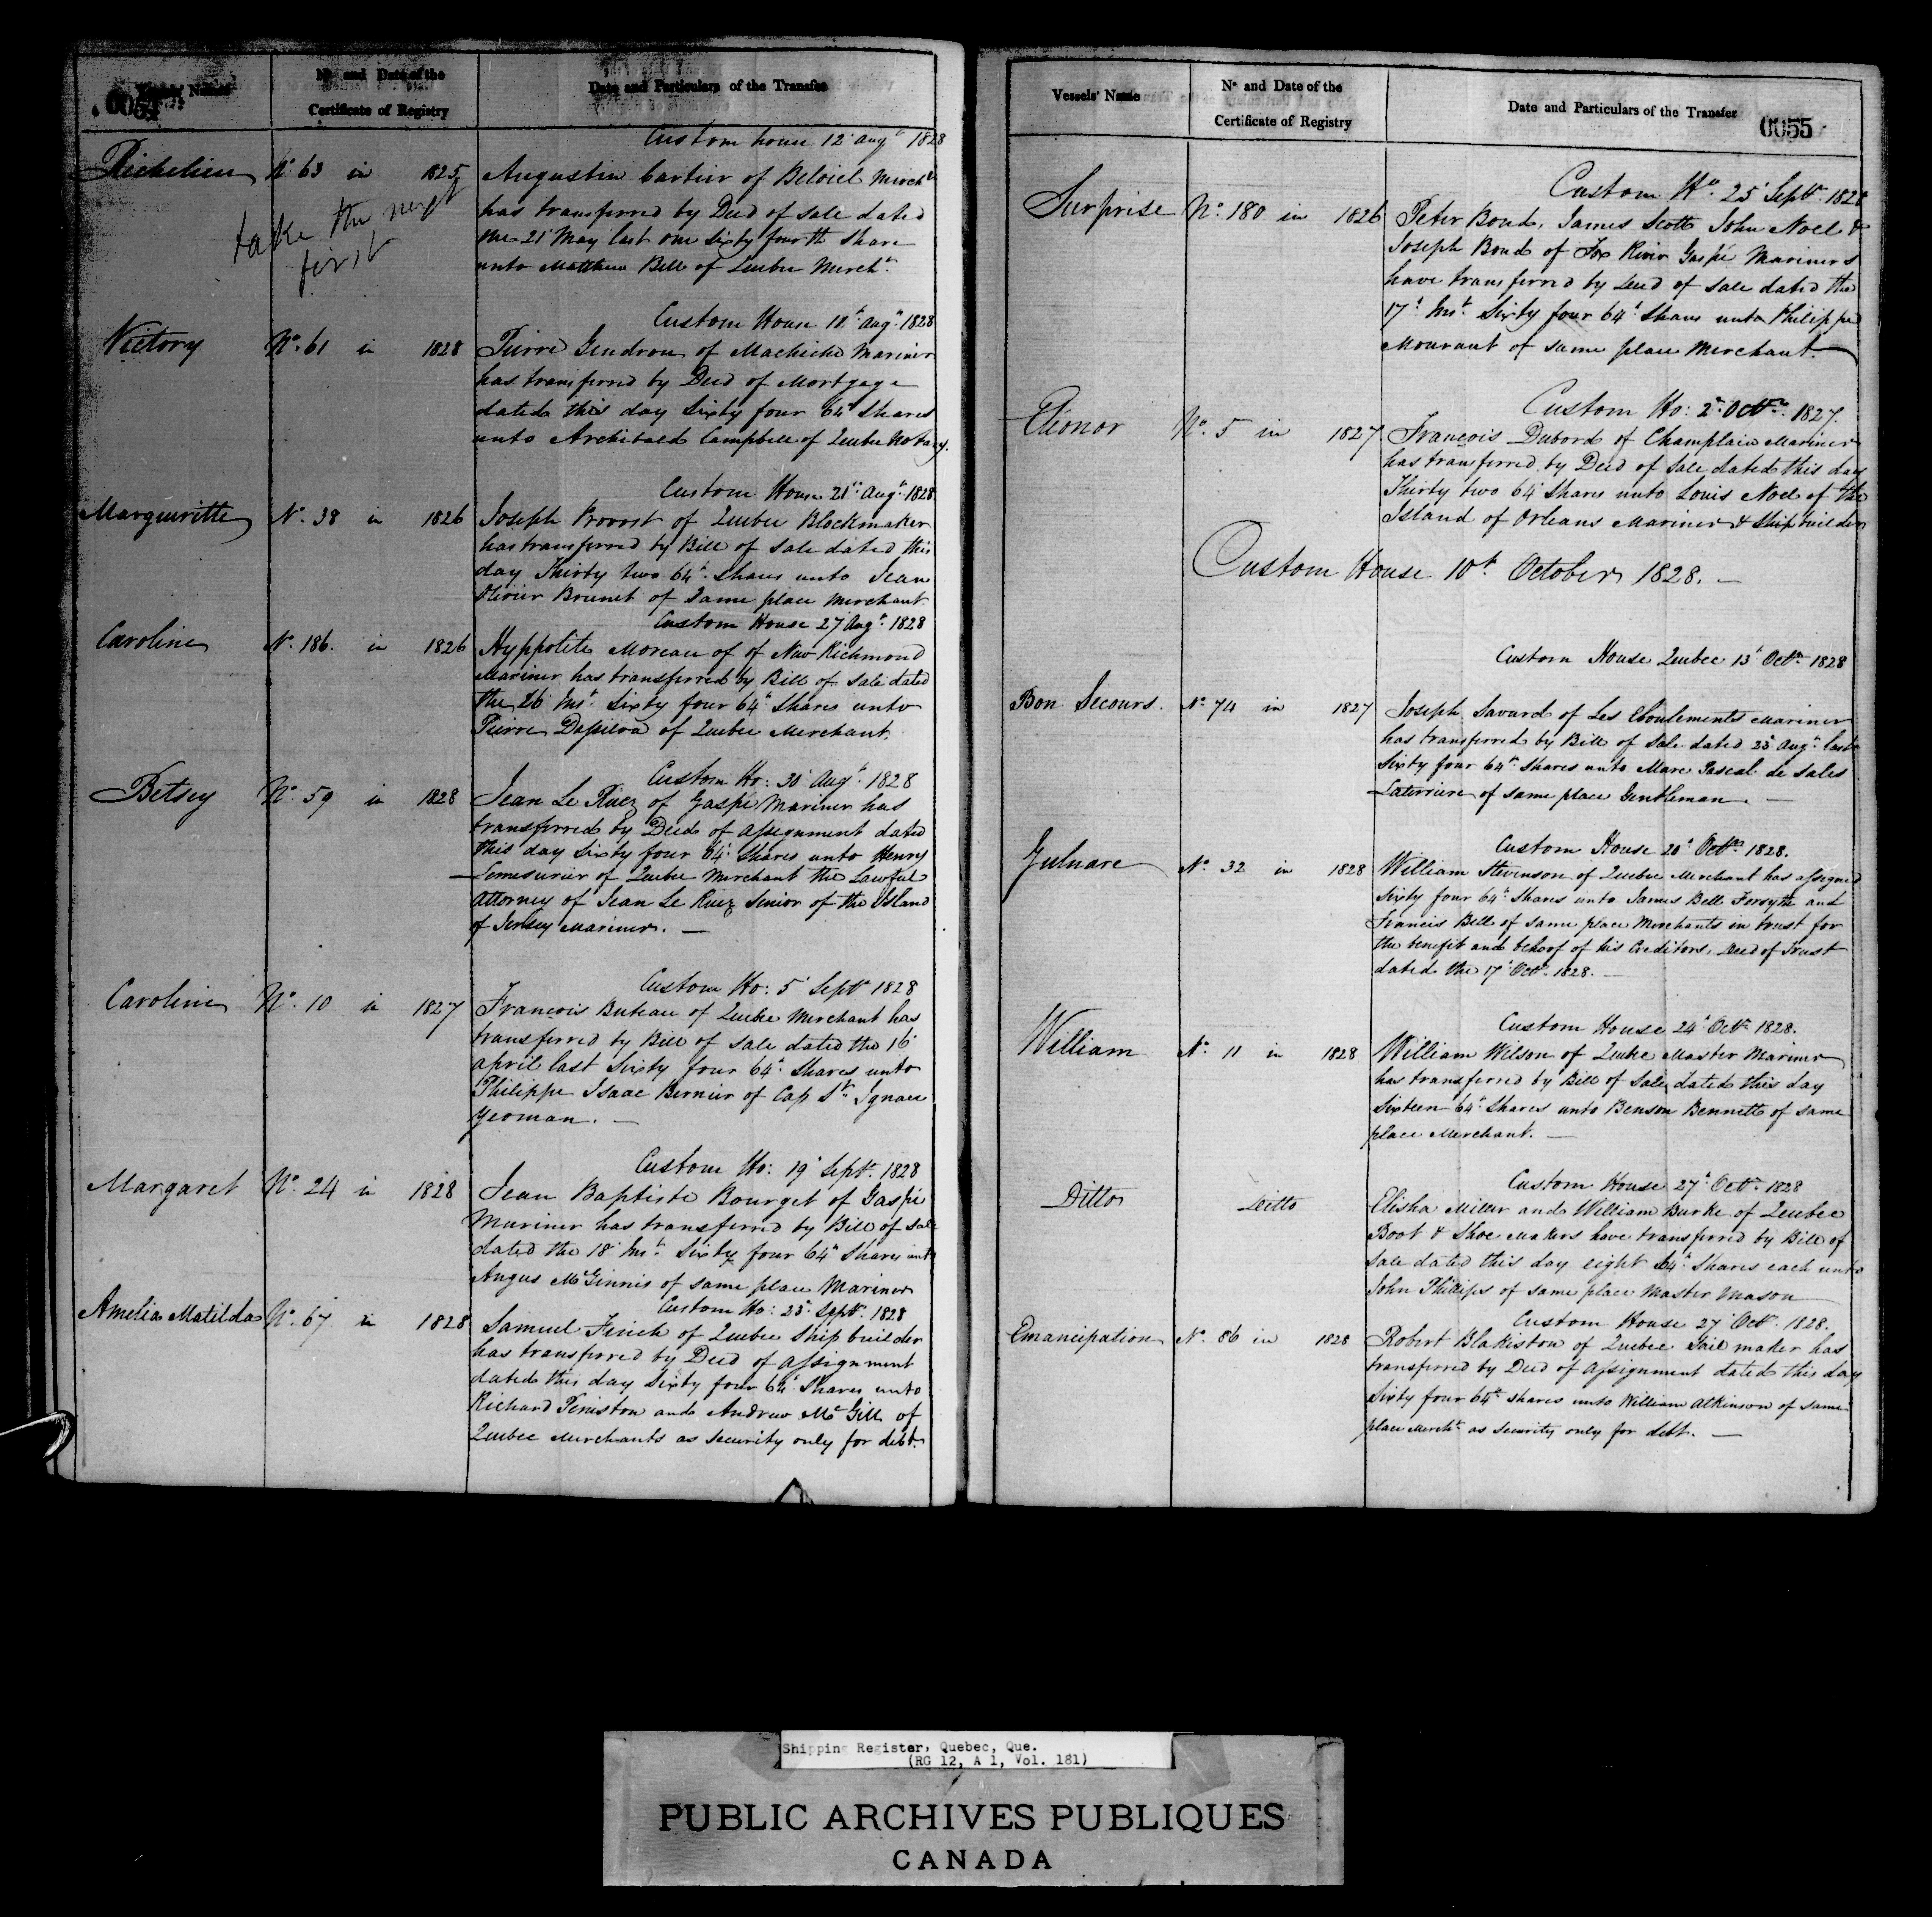 0054
Vessels' Name
Nº and Date of the
Certificate of Registry
Date and Particulars of the Transfer
Custom house 12t Augt 1828
Richelieu Nº 63 in 1825 Augustin Cartier of Beloeil Mercht
take the next
first
has transferred by Deed of Sale dated
the 21t May last one sixty fourth Share
unto Matthew Bell of Quebec Mercht.
Custom House 18t Augt. 1828
Victory Nº. 61 in 1828 Pierre Gendron of Machiche Mariner
has transferred by Deed of Mortgage
dated this day Sixty four 64t Shares
unto Archibald Campbell of Quebec Notary.
Custom House 21t Augt. 1828
Marguiritte Nº. 38 in 1826 Joseph Provost of Quebec Blockmaker
has transferred by Bill of Sale dated this
day Thirty two 64t. Shares unto Jean
Olivier Brunet of Same place Merchant
Custom House 27 Augt. 1828
Caroline Nº. 186. in 1826 Hyppolite Moreau of of New Richmond
Mariner has transferred by Bill of Sale dated
the 26t Inst. Sixty four 64t Shares unto
Pierre of Quebec Merchant.
Custom Ho: 30t Augt. 1828
Betsey Nº. 59 in 1828 Jean Le Ruez of Gaspé Mariner has
transferred by Deed of Assignment dated
this day Sixty four 64t Shares unto Henry
Lemesurier of Quebec Merchant the Lawful
Attorney of Jean Le Ruez Senior of the Island
of Jersey Mariner. —
Custom Ho: 5t Septr 1828
Caroline Nº. 10 in 1827 François Buteau of Quebec Merchant has
transferred by Bill of Sale dated the 16t
April last Sixty four 64t. Shares unto
Philippe Isaac Bernier of Cap St. Ignace
Yeoman. —
Custom Ho: 19t Septr. 1828
Margaret Nº. 24 in 1828 Jean Baptiste Bourget of Gaspé
Mariner has transferred by Bill of Sale
dated the 18t Inst. Sixty four 64t Shares unto
Angus McGinnis of same place Mariner
Custom Ho: 23t. Septr. 1828
Amelia Matilda Nº. 67 in 1828 Samuel Finch of Quebec Ship builder
has transferred by Deed of Assignment
dated this day Sixty four 64t Shares unto
Richard Peniston and Andrew McGill of
Quebec Merchants as Security only for debt.
Vessels' Name
Nº and Date of the
Certificate of Registry
Date and Particulars of the Transfer
0055
Custom Ho. 25t Septr. 1828
Surprise Nº. 180 in 1826 Peter Bond, James Scott John Noel &
Joseph Bond of Fox River Gaspé Mariners
have transferred by Deed of Sale dated the
17t. Inst. Sixty four 64t Shares unto Philippe
Mourant of same place Merchant.
Custom Ho: 2t Octr. 1827.
Eleonor Nº. 5 in 1827 François Dubord of Champlain Mariner
has transferred by Deed of Sale dated this day
Thirty two 64t Shares unto Louis Noel of the
Island of Orleans Mariner & Ship builder
Custom House 10t. October 1828. —
Custom House Quebec 13t Octr. 1828
Bon Secours. Nº. 74 in 1827 Joseph Savard of Les Eboulements Mariner
has transferred by Bill of Sale dated 23t Augt. last
Sixty four 64t. Shares unto Marc Pascal de Sales
Laterriere of same place Gentleman. —
Custom House 20t Octr. 1828.
Gulnare Nº. 32 in 1828 William Stevenson of Quebec Merchant has assigned
Sixty four 64t. Shares unto James Bell Forsyth and
Francis Bell of same place Merchants in trust for
the benefit and behoof of his Creditors, Deed of Trust
dated the 17t Octr. 1828. —
Custom House 24t Octr. 1828.
William Nº. 11 in 1828 William Wilson of Quebec Master Mariner
has transferred by Bill of Sale dated this day
Sixteen 64t. Shares unto Benson Bennett of same
place Merchant. —
Custom House 27t Octr. 1828
Ditto Ditto Elisha Miller and William Burke of Quebec
Boot & Shoe Makers have transferred by Bill of
Sale dated this day eight 64t. Shares each unto
John Phillips of same place Master Mason
Custom House 27t Octr. 1828.
Emancipation Nº. 86 in 1828 Robert Blakiston of Quebec Sail maker has
transferred by Deed of Assignment dated this day
Sixty four 64t. Shares unto William Atkinson of same
place Mercht. as Security only for debt. —
Shipping Register, Quebec, Que.
(RG 12, A 1, Vol. 181)
PUBLIC ARCHIVES PUBLIQUES
CANADA